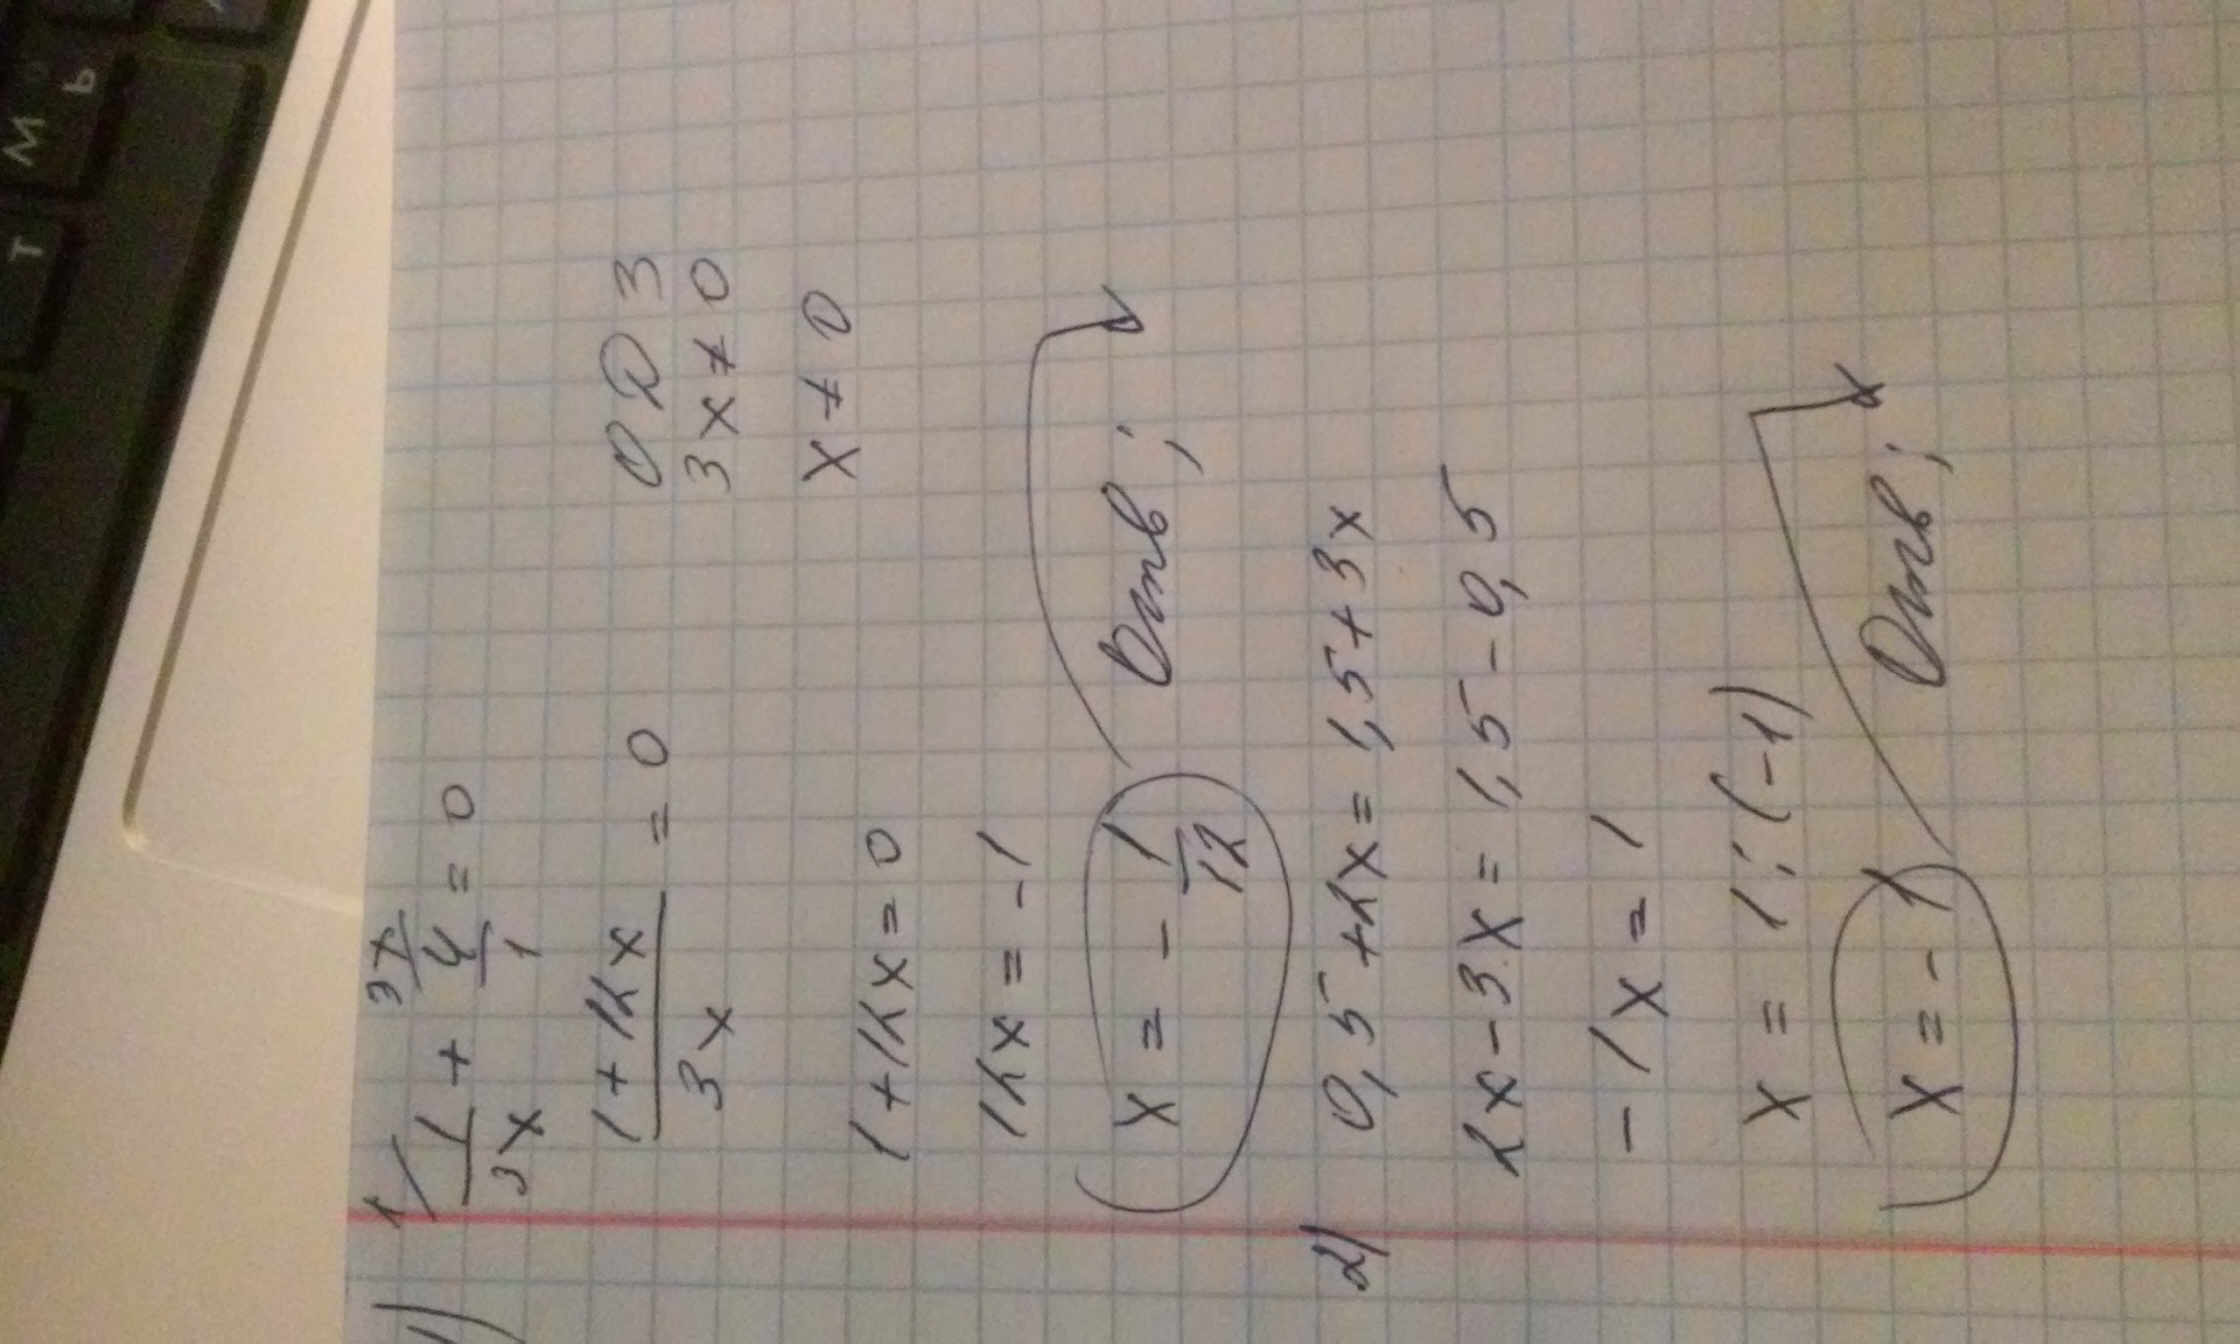 1) 1/3x + 4/1 (3x = 0
(1+12x)/3x = 0
ОДЗ
3x ≠ 0
x ≠ 0
1+12x=0
12x = -1
x = - 1/12
Отв;
2) 0,5+2x = 1,5+3x
2x-3x = 1,5-0,5
-1x = 1
x = 1:(-1)
x = -1
Отв;
Т М Ь